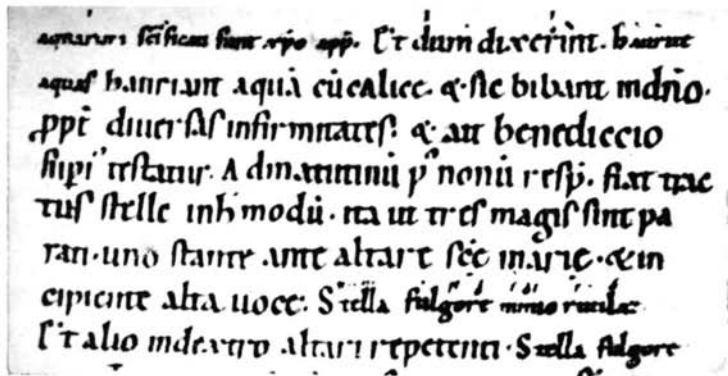 aquarum sunt xpo app. Et dum dixerint. haurite
aquas hauriant aquā cū calice. & sic bibant in dño.
ppt̄ diuersas infirmitates. & aut benediccio
testatur. Ad matutinū p' nonū resp̄. fiat trac
tus stelle in h' modū. ita ut tres magis sint pa
rati. uno stante ante altare sc̄e marie. & in
cipiente alta uoce: Stella fulgore nimio rutilat
Et alio in dextro altari repetenti. Stella fulgore